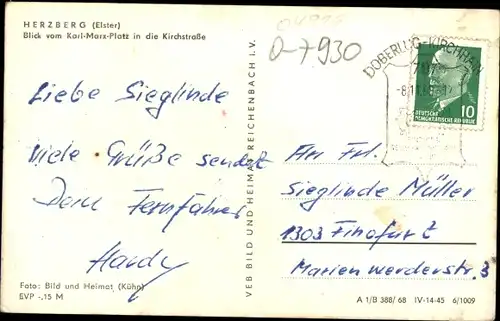 HERZBERG (Elster)
Blick vom Karl-Marx-Platz in die Kirchstraße
D-7930
DOBERLUG-KIRCHHAIN
DEUTSCHE
DEMOKRATISCHE REPUBLIK
10
Liebe Sieglinde
viele Grüße sendet
Dein Fernfahrer
Hardy
VEB BILD UND HEIMAT REICHENBACH I.V.
An Frl.
Sieglinde Müller
1303 Finofurt
Marienwerderstr. 3
Foto: Bild und Heimat (Kühn)
EVP -,15 M
A 1/B 388/68 IV-14-45 6/1009